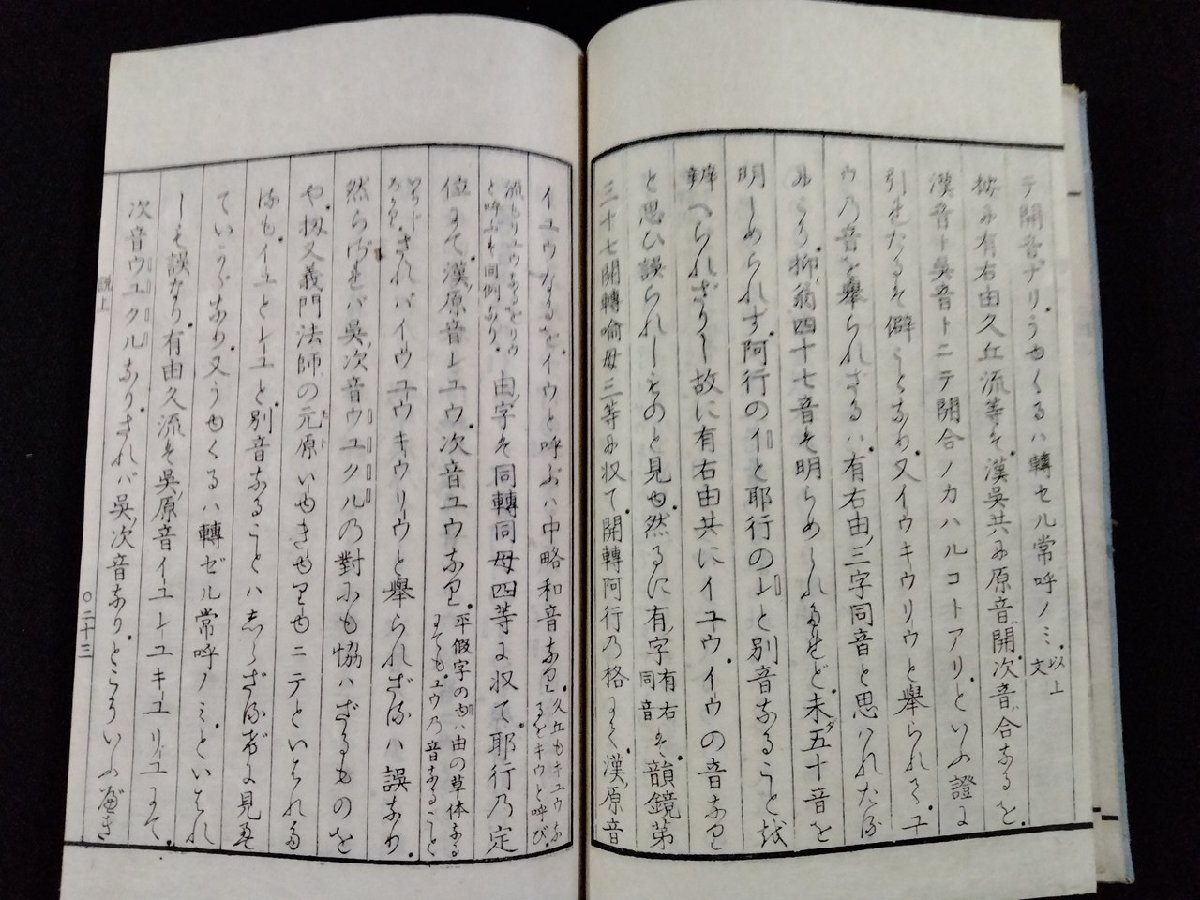 テ開音ナリ。うゆくるハ轉セル常呼ノミ。以上文
按に有右由久丘流等を漢吳共に原音開次音合なるを。
漢音ト吳音トニテ開合ノカハルコトアリ。といふ證に
引きたるを僻ことなり又イウキウリウと擧られて。ユ
ウ乃音を擧られざるハ。有右由三字同音と思ハれたる
ならん。抑翁四十七音を明らめしれたれど。未五十音を
明しめられず。阿行のイと耶行の𛀆と別音なること或
辨へられざりし故に有右由共にイユウ。イウの音なりと
と思ひ誤られしものと見ゆ。然るに有字有右同音を。韻鏡第
三十七開轉喩母三等に収て。開轉阿行乃格にて。漢原音
イユウなるを。イウと呼ぶハ中略和音なり。久丘もキユウなるをキウと呼び。流もリユウなるをリウと呼ぶも同例なり。
由字を同轉同母四等に収て。耶行乃定
位にて。漢原音𛀆ユウ。次音ユウなり。平假字のゆハ由の草体なるにても。ユウ乃音なること
されバイウユウキウリウと擧られざるハ誤なり。
然らざれバ吳次音ウユクル乃對にも恊ハざるものを
や。扨又義門法師の元原いゆきゆりゆニテといはれた
るも。イユと𛀆ユと別音なることハ志らざる者に見え
ていかゞなり。又うゆくるハ轉ゼル常呼ノミ。といはれ
しも誤なり。有由久流を吳原音イユ𛀆ユキユリユにて。
次音ウユクルなり。されバ吳次音なり。ところいふべき
説上
〇二十三